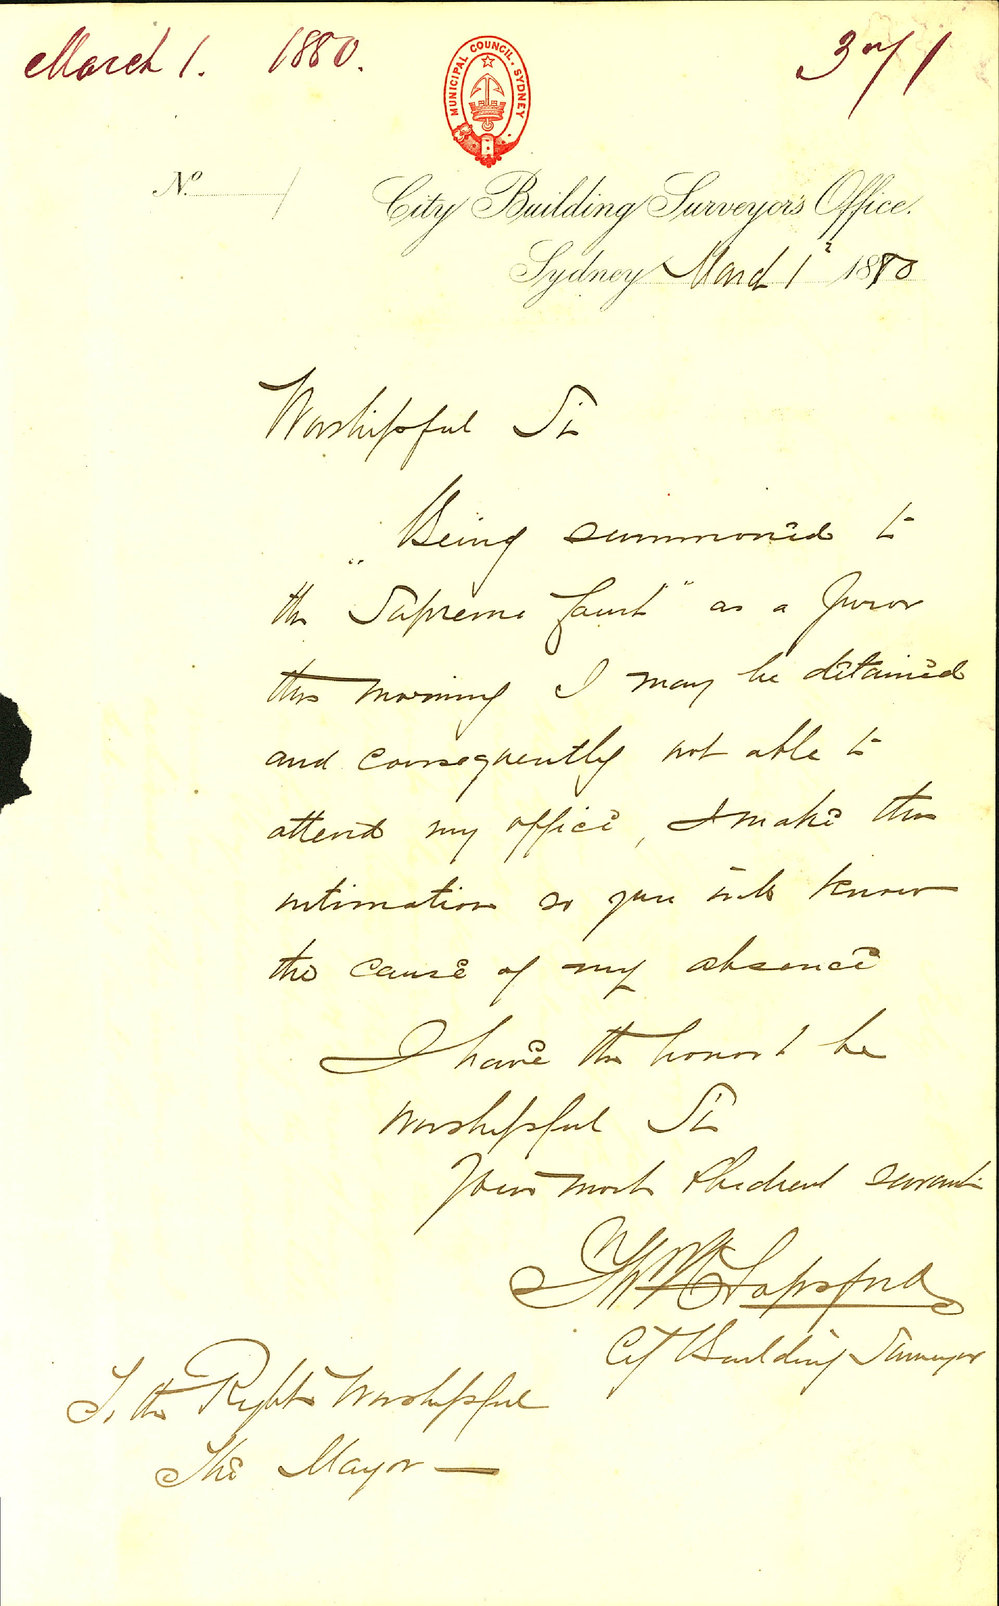 March 1. 1880.
MUNICIPAL COUNCIL. SYDNEY
No
City Building Surveyor's Office.
Sydney March 1 1880
Worshipful Sir
Being summoned to
the "Supreme Court" as a Juror
this morning I may be detained
and consequently not able to
attend my office, I make this
intimation so you will know
the cause of my absence
I have the honor to be
Worshipful Sir
Your most obedient servant
Sapsford
City Building Surveyor
To the Right Worshipful
The Mayor —